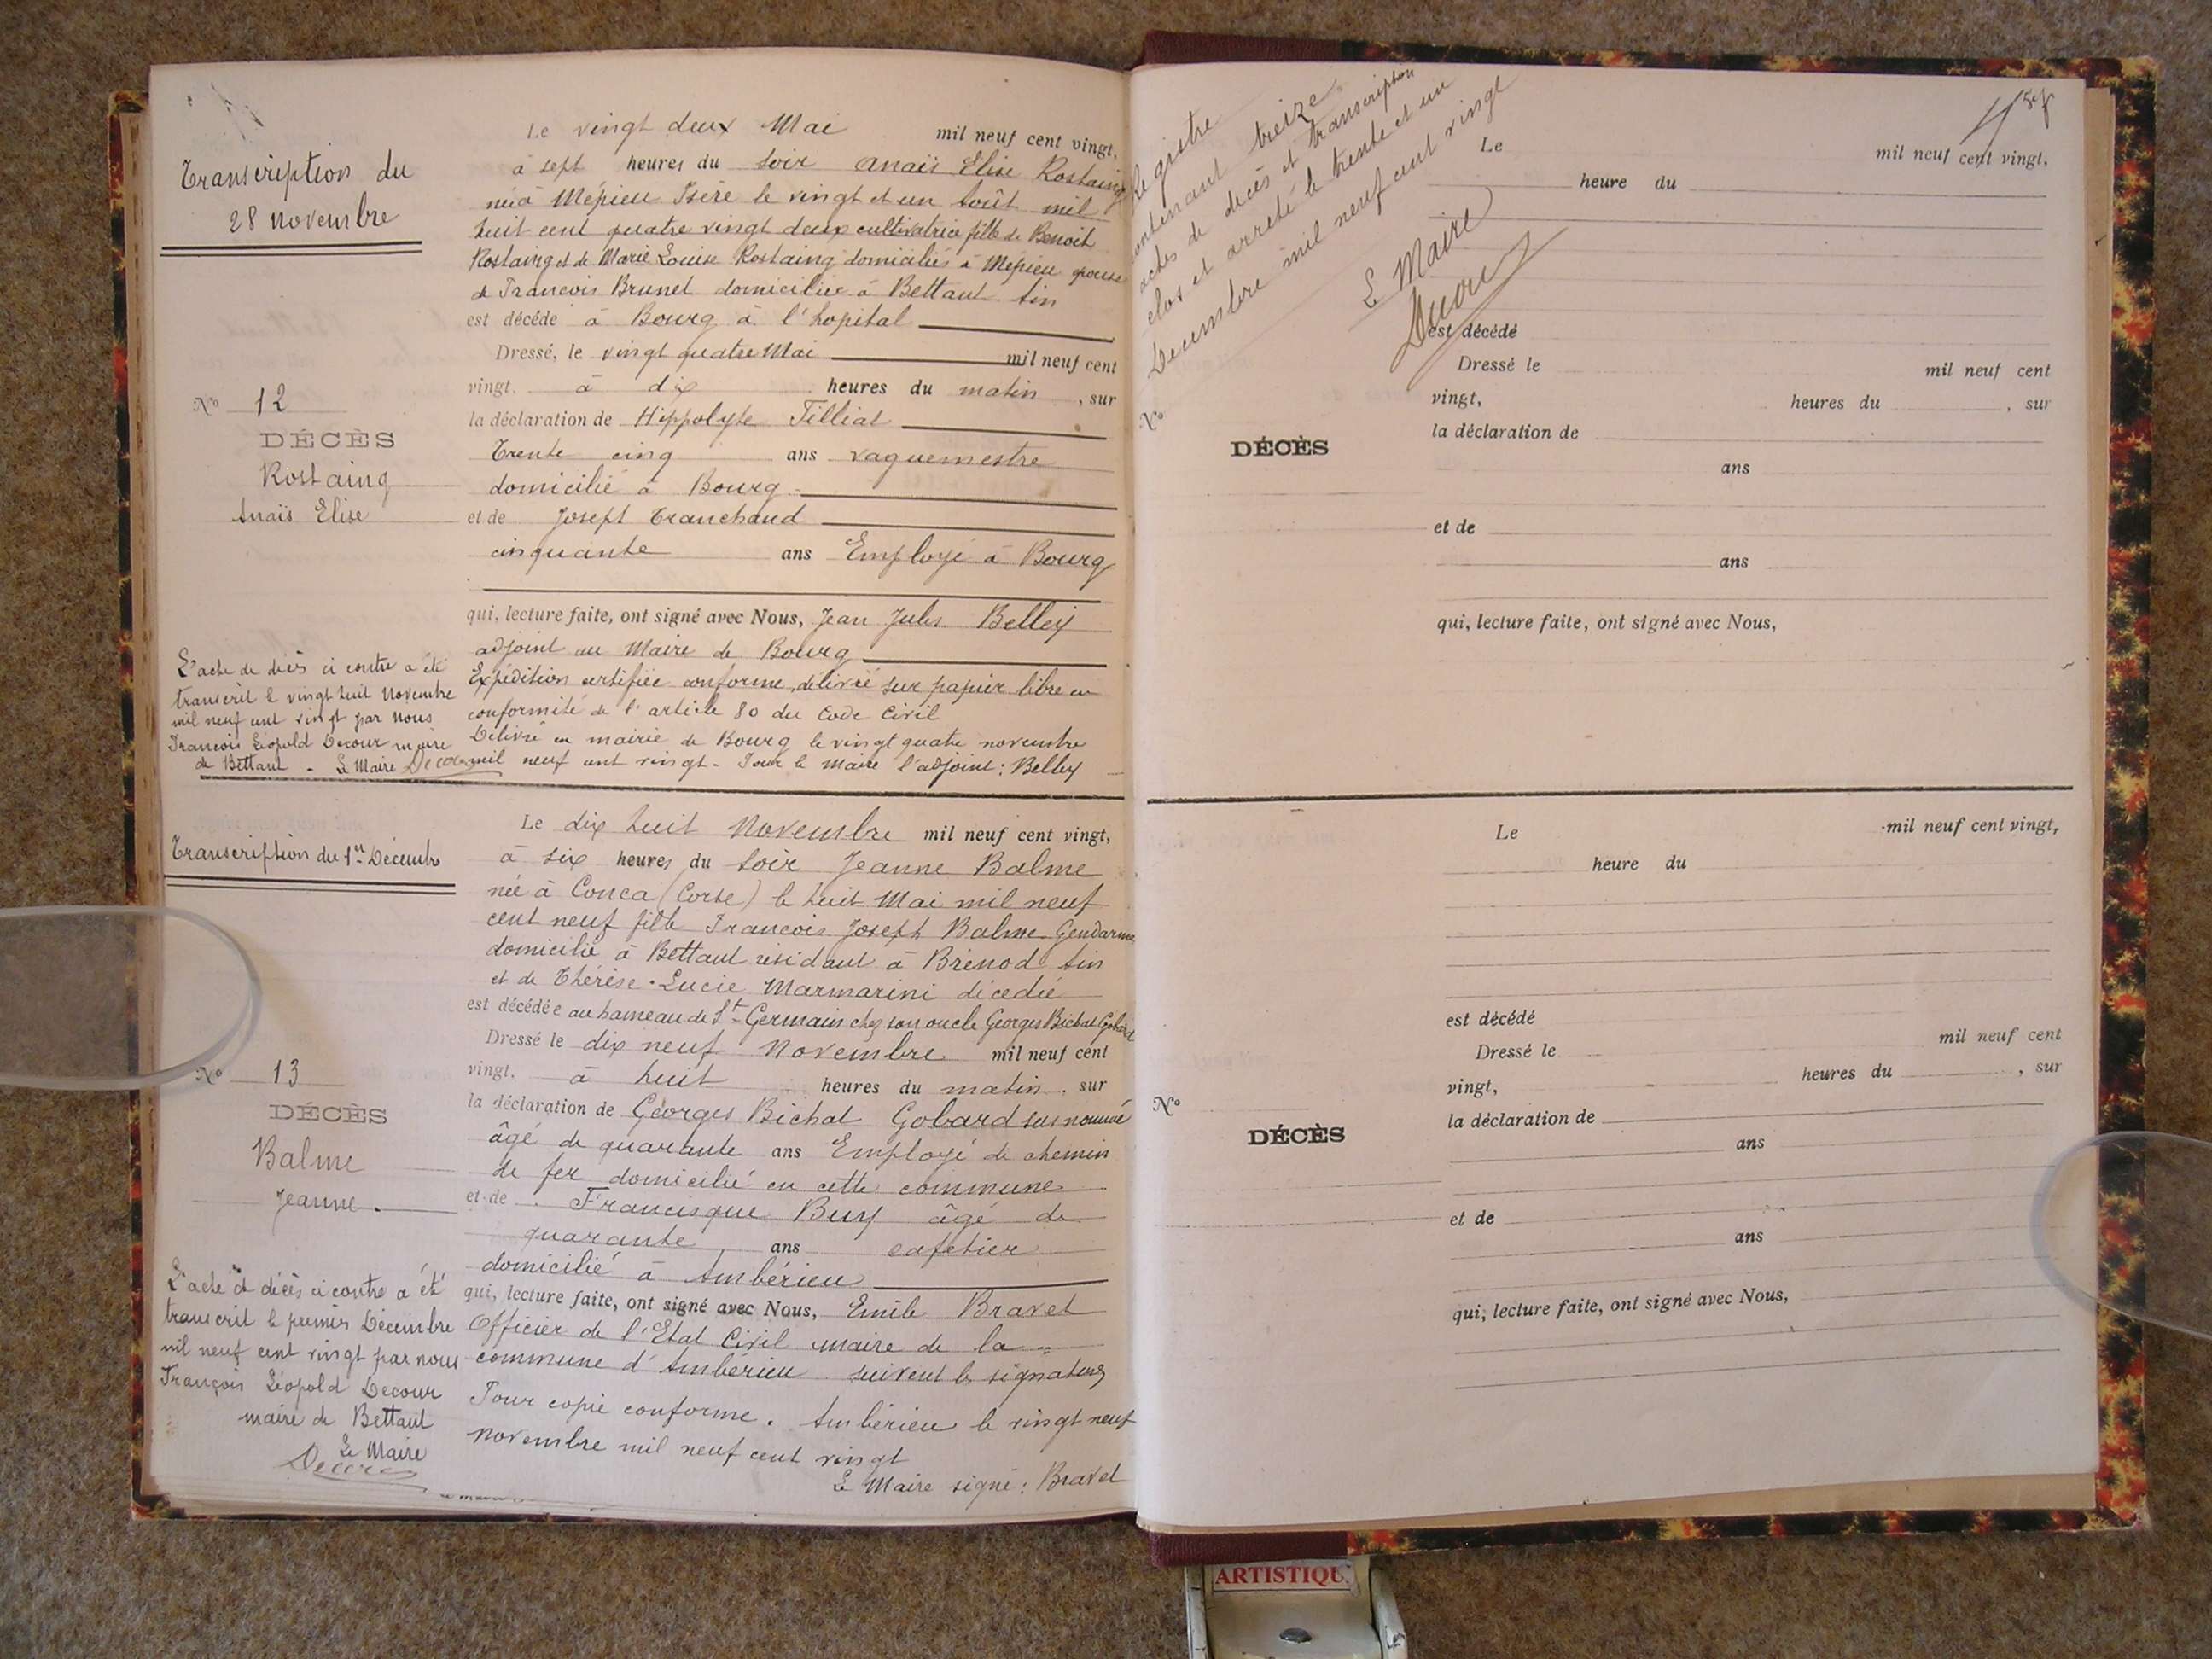 Transcription du
28 novembre
Le vingt deux Mai mil neuf cent vingt,
à sept heures du soir Anaïs Elise Rostaing
née à Mépieu Isère le vingt et un Août mil
huit cent quatre vingt deux cultivatrice fille de Benoit
Rostaing et de Marie Louise Rostaing domiciliés à Mépieu épouse
de Francois Brunet domiciliée à Bettant Ain
est décédé à Bourg à l'hopital
Dressé, le vingt quatre Mai mil neuf cent
vingt. à dix heures du matin, sur
la déclaration de Hippolyte Tilliat
Trente cinq ans vaguemestre
domicilié à Bourg
et de Joseph Tranchand
cinquante ans Employé à Bourg
qui, lecture faite, ont signé avec Nous, Jean Jules Belley
adjoint au Maire de Bourg
Expédition certifiée conforme, délivré sur papier libre en
conformité de l'article 80 du Code Civil
Délivré en mairie de Bourg le vingt quatre novembre
mil neuf cent vingt - Pour le Maire l'adjoint : Belley
No 12
DÉCÈS
Rostaing
Anaïs Elise
L'acte de décès ci contre a été
transcrit le vingt huit Novembre
mil neuf cent vingt par nous
Francois Léopold Decour maire
de Bettant - Le Maire Decour
Transcription du 1er Décembre
Le dix huit Novembre mil neuf cent vingt,
à six heures du soir Jeanne Balme
née à Conca (Corse) le huit Mai mil neuf
cent neuf fille Francois Joseph Balme Gendarme
domicilié à Bettant résidant à Brénod Ain
et de Thérèse-Lucie Marmarini décédée
est décédée au hameau de St-Germain chez son oncle Georges Bichat Gobard
Dressé le dix neuf Novembre mil neuf cent
vingt. à huit heures du matin, sur
la déclaration de Georges Bichat Gobard sus nommé
âgé de quarante ans Employé de chemin
de fer domicilié en cette commune
et de Francisque Buy âgé de
quarante ans cafetier
domicilié à Ambérieu
qui, lecture faite, ont signé avec Nous, Emile Bravet
Officier de l'Etat Civil maire de la
commune d'Ambérieu suivent les signatures
Pour copie conforme. Ambérieu le vingt neuf
novembre mil neuf cent vingt
Le Maire signé : Bravet
No 13
DÉCÈS
Balme
Jeanne.
L'acte de décès ci contre a été
transcrit le premier Décembre
mil neuf cent vingt par nous
François Léopold Decour
maire de Bettant
Le Maire
Decour
Registre
contenant treize
actes de décès et transcription
clos et arrêté le trente et un
Decembre mil neuf cent vingt
Le Maire
Decour
Le mil neuf cent vingt,
heure du
est décédé
Dressé le mil neuf cent
vingt, heures du , sur
la déclaration de
ans
et de
ans
qui, lecture faite, ont signé avec Nous,
No
DÉCÈS
Le mil neuf cent vingt,
heure du
est décédé
Dressé le mil neuf cent
vingt, heures du , sur
la déclaration de
ans
et de
ans
qui, lecture faite, ont signé avec Nous,
No
DÉCÈS
ARTISTIQU